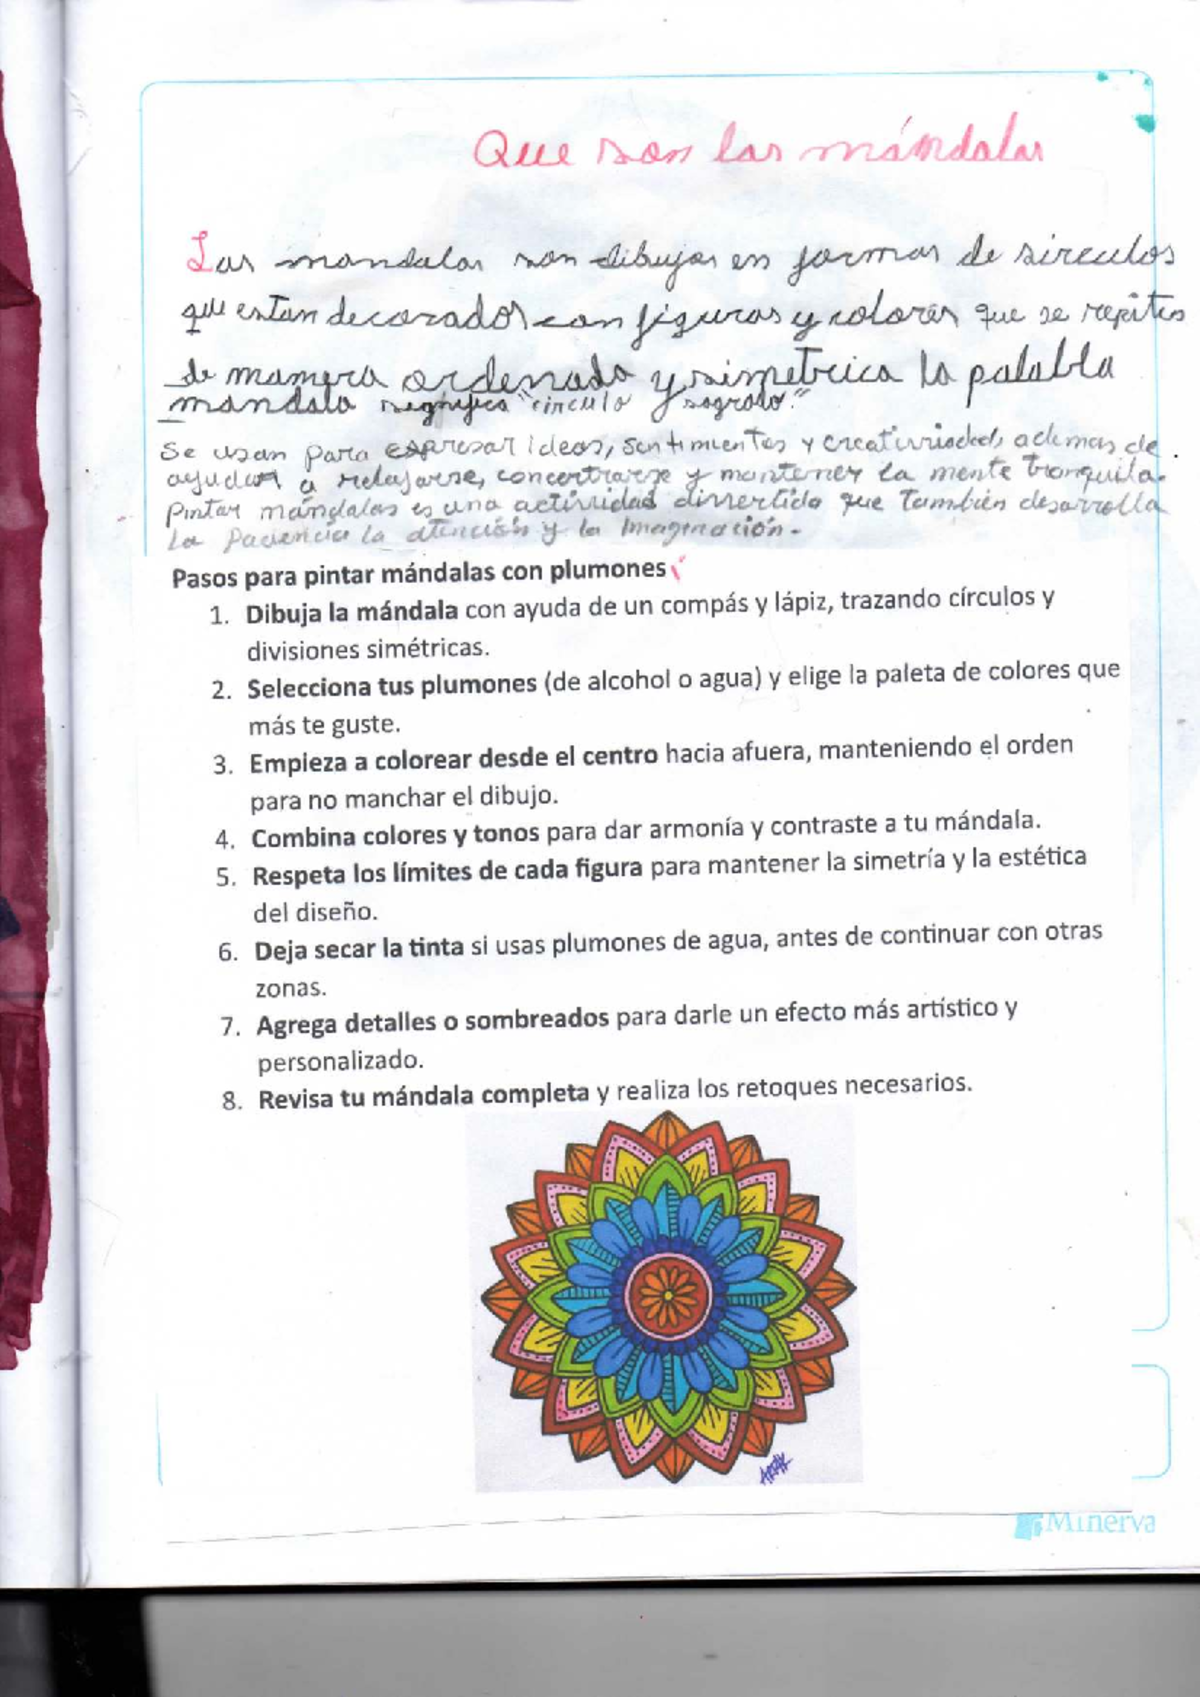 Que son las mándalas
Las mandalas son dibujas en formas de sirculos
que estan decorados con figuras y colores que se repiten
de manera ordenada y simetrica la palabla
mandala significa "circulo sagrado."
Se usan para expresar ideas, sentimientos y creatividad, ademas de
ayudan a relajarse, concertrarse y mantener la mente tranquila.
Pintar mándalas es una actividad divertida que también desarrolla
la paciencia la atención y la Imaginación.
Pasos para pintar mándalas con plumones
1. Dibuja la mándala con ayuda de un compás y lápiz, trazando círculos y
divisiones simétricas.
2. Selecciona tus plumones (de alcohol o agua) y elige la paleta de colores que
más te guste.
3. Empieza a colorear desde el centro hacia afuera, manteniendo el orden
para no manchar el dibujo.
4. Combina colores y tonos para dar armonía y contraste a tu mándala.
5. Respeta los límites de cada figura para mantener la simetría y la estética
del diseño.
6. Deja secar la tinta si usas plumones de agua, antes de continuar con otras
zonas.
7. Agrega detalles o sombreados para darle un efecto más artístico y
personalizado.
8. Revisa tu mándala completa y realiza los retoques necesarios.
Minerva